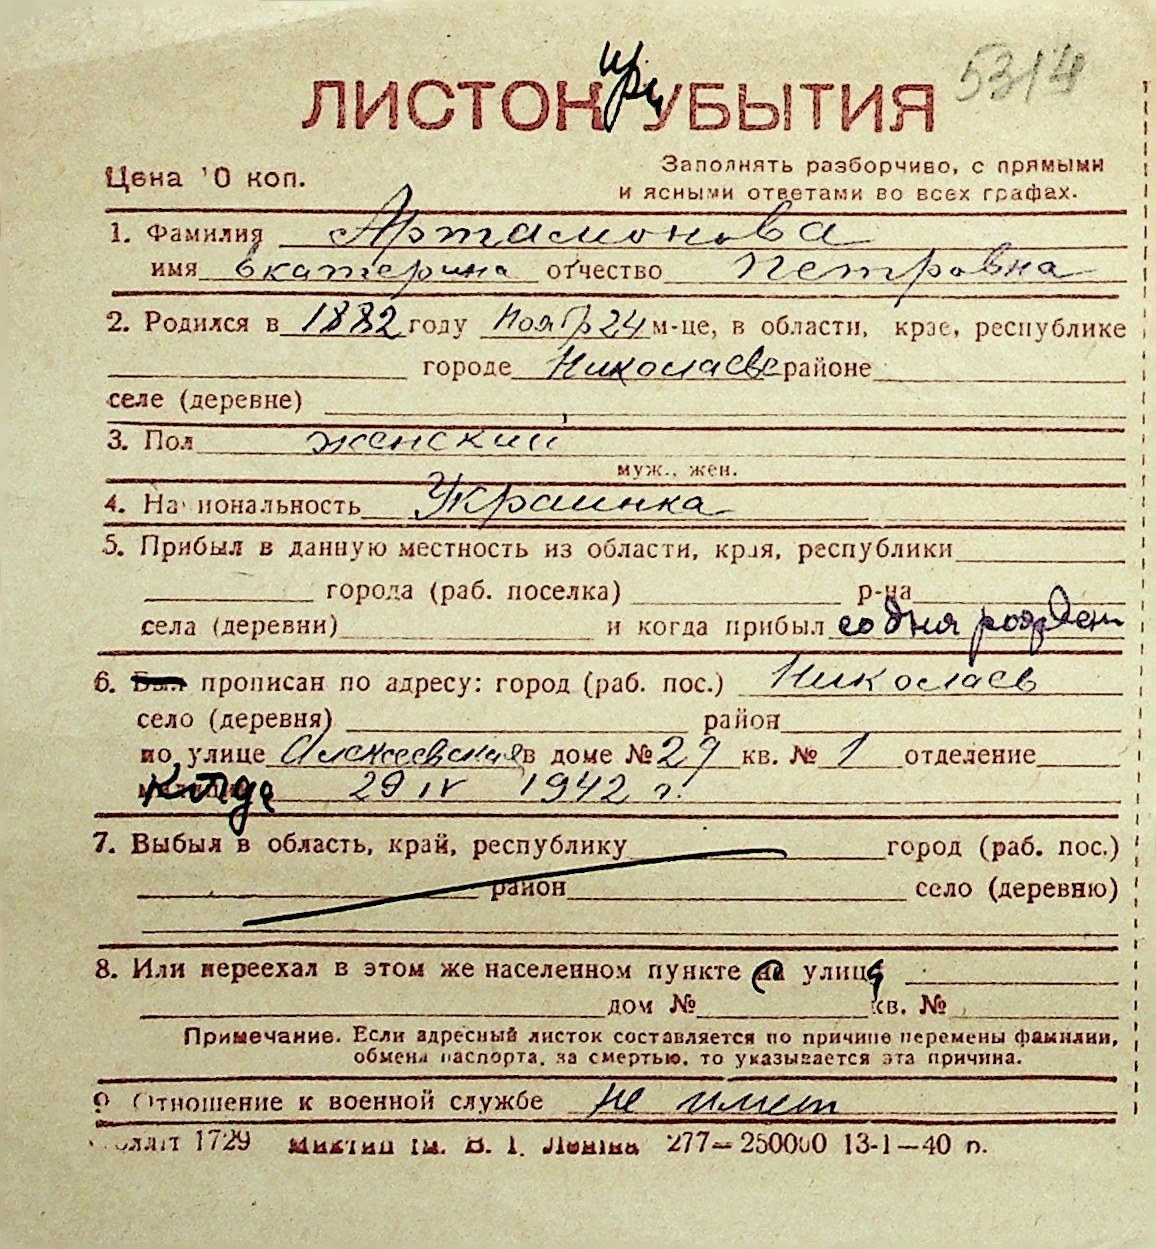 5314
ЛИСТОК при УБЫТИЯ
Цена 10 коп.
Заполнять разборчиво, с прямыми
и ясными ответами во всех графах.
1. Фамилия Артамонова
имя Екатерина отчество Петровна
2. Родился в 1882 году Нояб 24 м-це, в области, крае, республике
городе Николаеве районе
селе (деревне)
3. Пол женский
муж., жен.
4. Национальность Украинка
5. Прибыл в данную местность из области, края, республики
города (раб. поселка) р-на
села (деревни) и когда прибыл со дня рожден
6. Был прописан по адресу: город (раб. пос.) Николаев
село (деревня) район
по улице Алексеевская в доме № 29 кв. № 1 отделение
Когда 29 IV 1942 г.
7. Выбыл в область, край, республику город (раб. пос.)
район село (деревню)
8. Или переехал в этом же населенном пункте улице
дом № кв. №
Примечание. Если адресный листок составляется по причине перемены фамилии,
обмена паспорта, за смертью, то указывается эта причина.
9. Отношение к военной службе не имет
1729 ім. В. І. Леніна 277—250000 13-1—40 р.